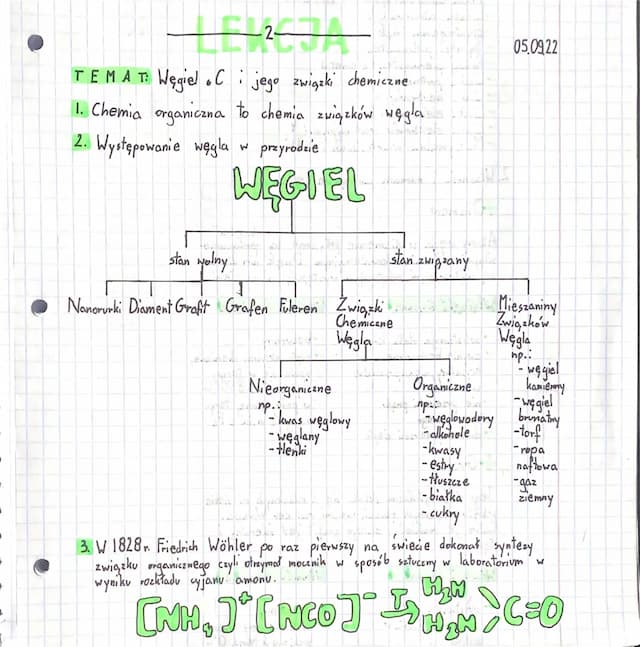 LEKCJA 2
05.09.22
TEMAT: Węgiel C i jego związki chemiczne
1. Chemia organiczna to chemia związków węgla
2. Występowanie węgla w przyrodzie
WĘGIEL
stan wolny
stan związany
Nanorurki Diament Grafit Grafen Fuleren
Związki
Chemiczne
Węgla
Mieszaniny
Związków
Węgla
np.:
- węgiel
kamienny
- węgiel
brunatny
- torf
- ropa
naftowa
- gaz
ziemny
Nieorganiczne
np.:
- kwas węglowy
- węglany
- tlenki
Organiczne
np.:
- węglowodory
- alkohole
- kwasy
- estry
- tłuszcze
- białka
- cukry
3. W 1828r. Friedrich Wöhler po raz pierwszy na świecie dokonał syntezy
związku organicznego czyli otrzymał mocznik w sposób sztuczny w laboratorium w
wyniku rozkładu cyjanu amonu.
[NH4]+ [NCO]- T→ H2N H2N C=O